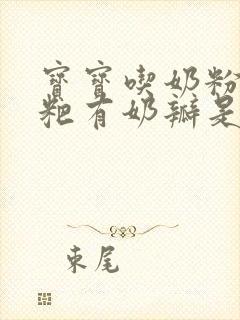 寶寶喫奶粉
粑有奶瓣是
束尾